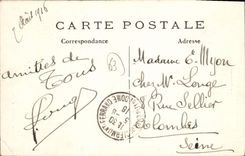 7 Août 1916
CARTE POSTALE
Correspondance
Adresse
amitiés de
Tous
Madame E. Myon
chez Mr Louge
8 Rue Sellier
Colombes
Seine
CLERMONT-FERRAND
PUY-DE-DOME
B